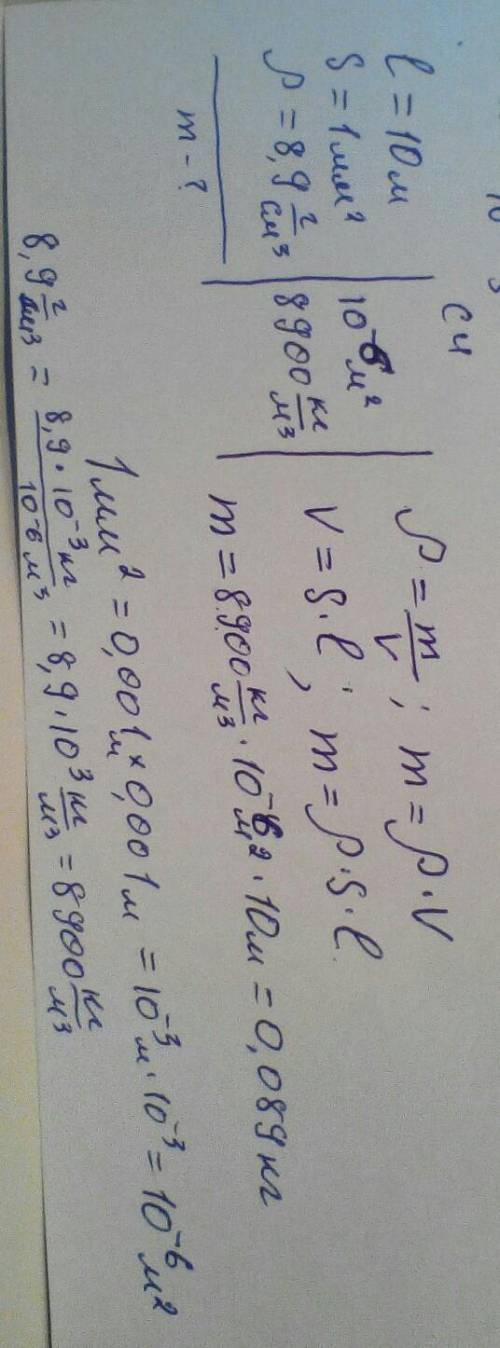 СИ
l = 10 м
S = 1 мм² | 10⁻⁶ м²
ρ = 8,9 г/см³ | 8900 кг/м³
m - ?
ρ = m/V ; m = ρ · V
V = S · l ; m = ρ · S · l.
m = 8900 кг/м³ · 10⁻⁶ м² · 10 м = 0,089 кг
1 мм² = 0,001 м × 0,001 м = 10⁻³ м · 10⁻³ = 10⁻⁶ м²
8,9 г/см³ = 8,9 · 10⁻³ кг / 10⁻⁶ м³ = 8,9 · 10³ кг/м³ = 8900 кг/м³